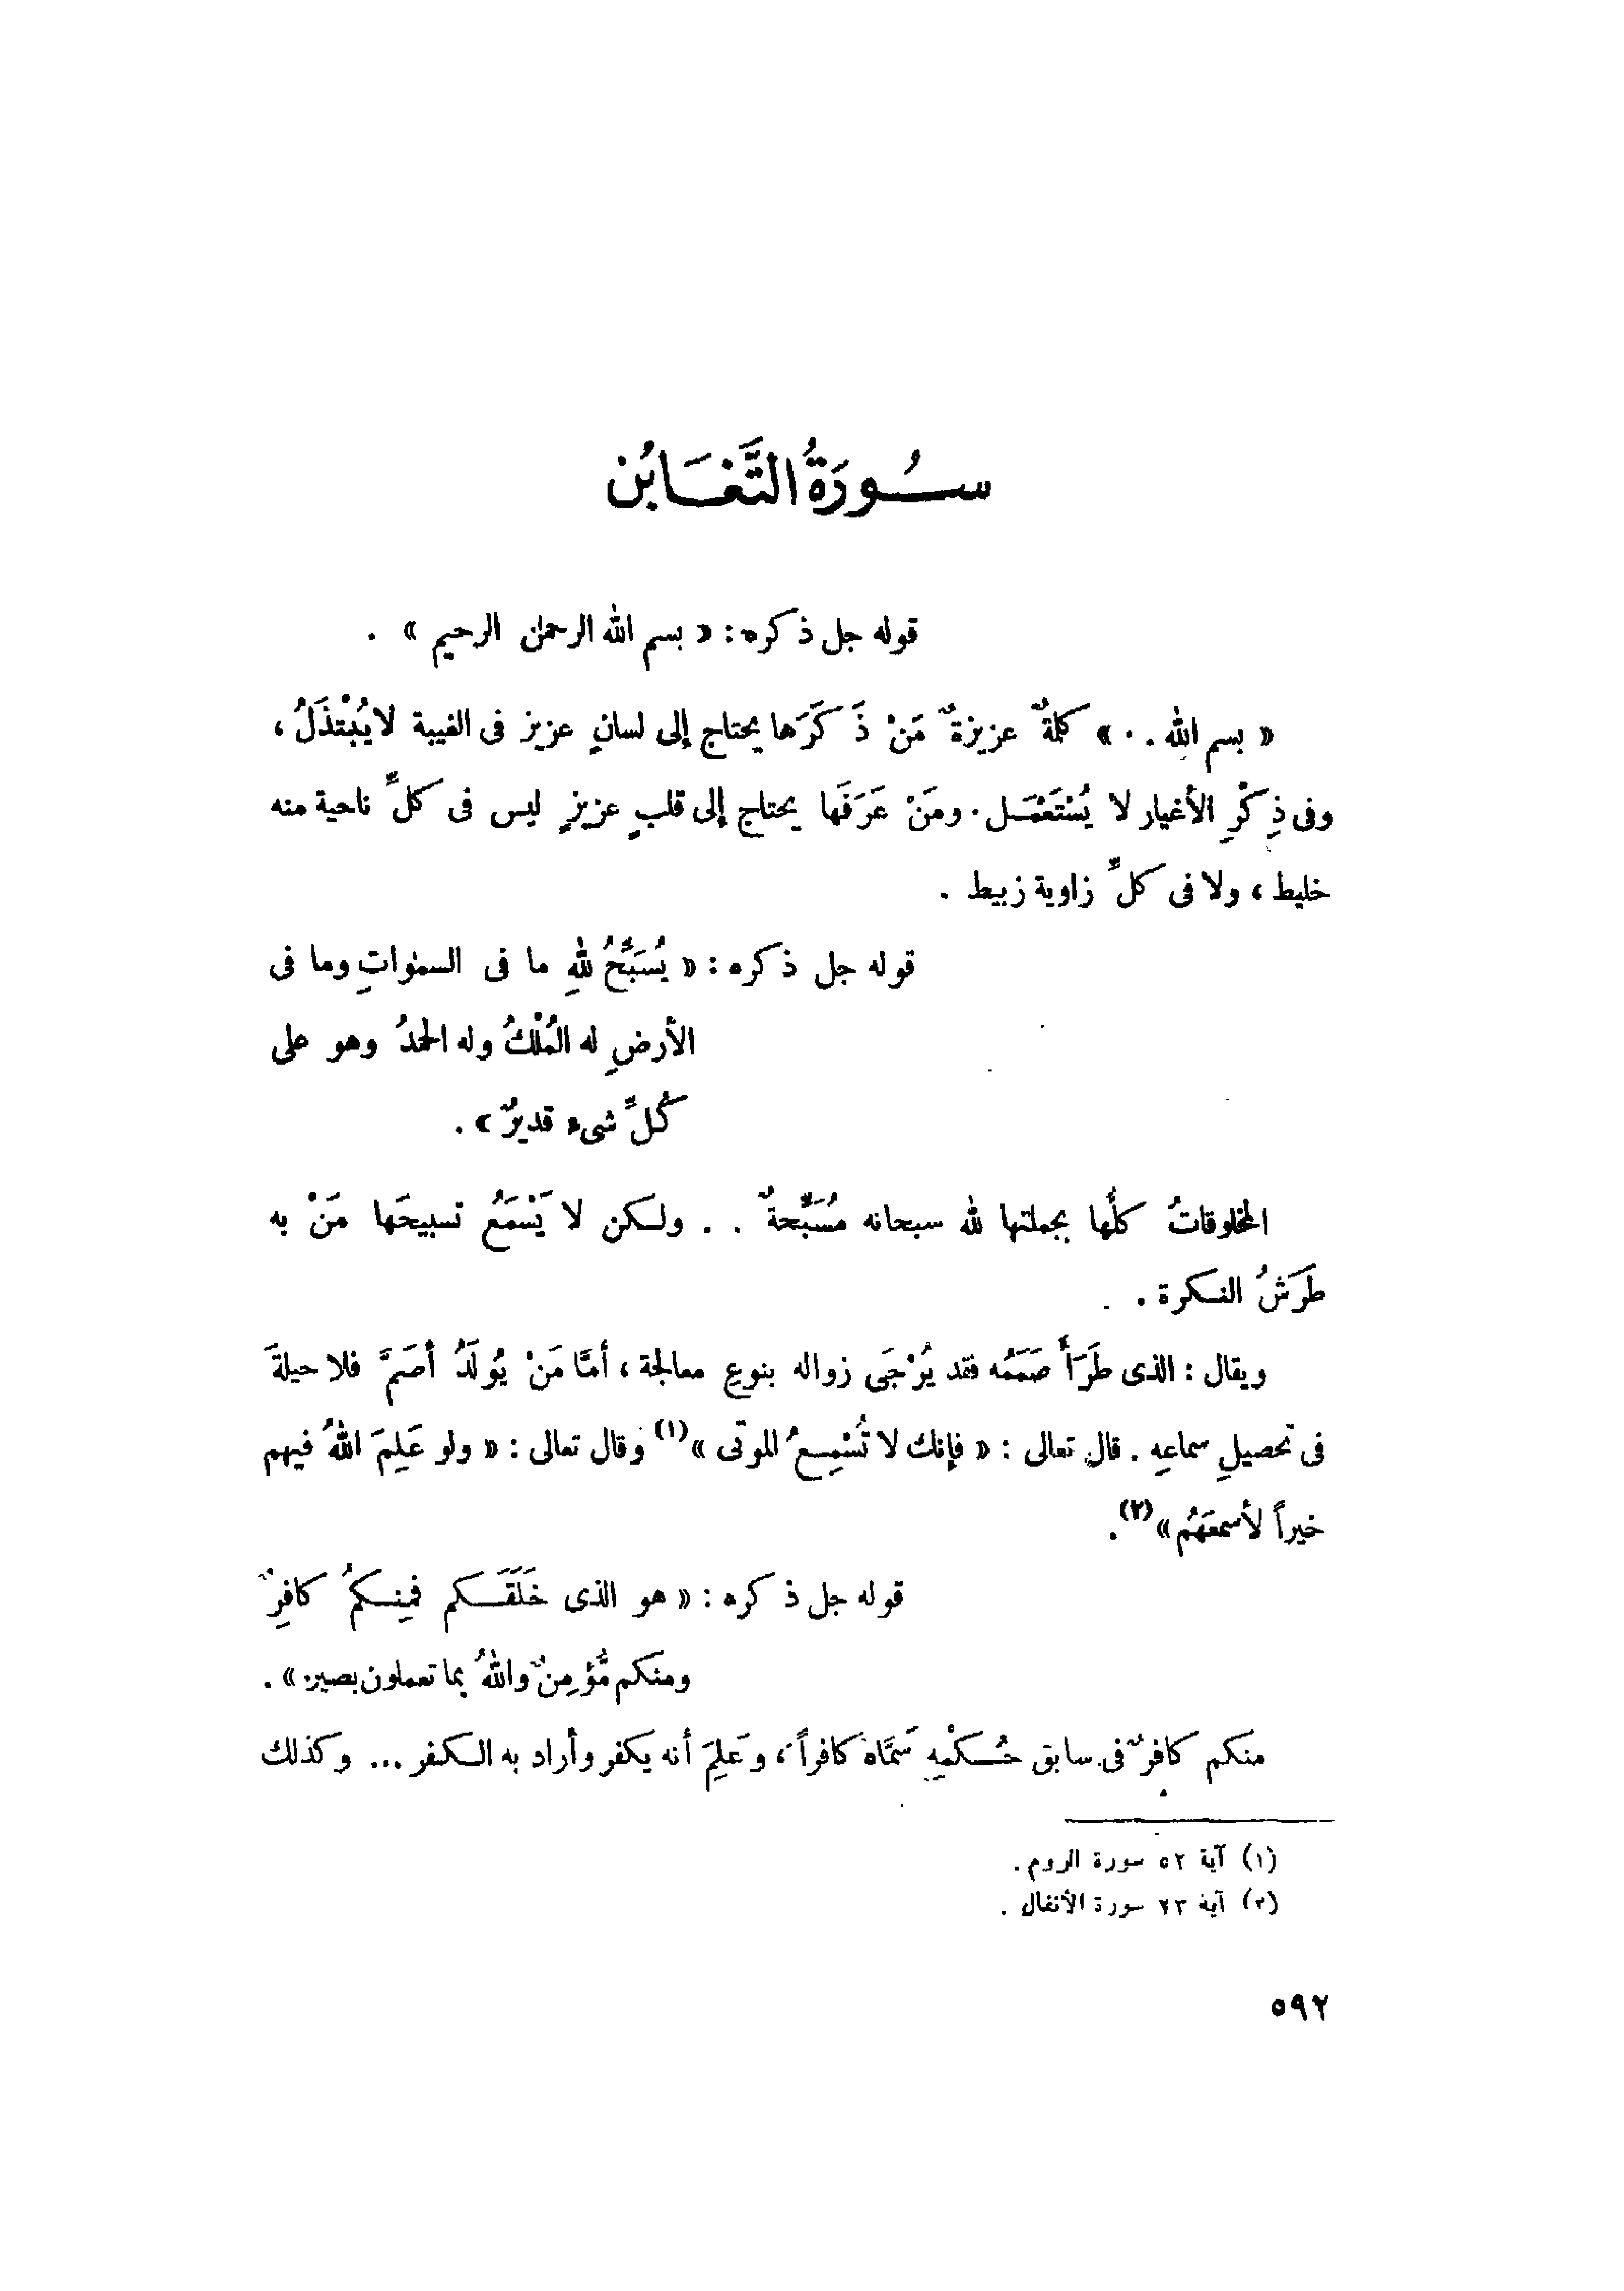 سُورَةُ التَّغَابُن
قوله جل ذكره : « بسم الله الرحمٰن الرحيم » .
« بسم الله . . » كلمةٌ عزيزةٌ مَنْ ذَكَرَها يحتاج إلى لسانٍ عزيز فى الغيبة لا يُبْتذَلُ ،
وفى ذِكْرِ الأغيار لا يُسْتَعْمَل . ومَنْ عَرَفَها يحتاج إلى قلبٍ عزيزٍ ليس فى كلِّ ناحية منه
خليط ، ولا فى كلِّ زاوية زبيط .
قوله جل ذكره : « يُسَبِّحُ للهِ ما فى السمٰواتِ وما فى
الأرضِ له المُلْكُ وله الحمدُ وهو على
كُلِّ شىء قديرٌ » .
المخلوقاتُ كلُّها بجملتها لله سبحانه مُسَبِّحةٌ . . ولكن لا يَسْمَعُ تسبيحَها مَنْ به
طَرَشُ النكرة .
ويقال : الذى طَرَأَ صَمَمُه فقد يُرْجَى زواله بنوعِ معالجة ، أمَّا مَنْ يُولَدُ أصَمَّ فلا حيلةَ
فى تحصيلِ سماعهِ . قال تعالى : « فإنك لا تُسْمِعُ الموتى »(١) وقال تعالى : « ولو عَلِمَ اللهُ فيهم
خيراً لأسمعَهُم »(٢) .
قوله جل ذكره : « هو الذى خَلَقَكم فمِنكمُ كافرٌ
ومنكم مُّؤمِنٌ واللهُ بما تعملون بصير » .
منكم كافرٌ فى سابق حُكْمهِ سَمَّاه كافراً ، وعَلِمَ أنه يكفر وأراد به الكفر ... وكذلك
(١) آية ٥٢ سورة الروم .
(٢) آية ٢٣ سورة الأنفال .
٥٩٢